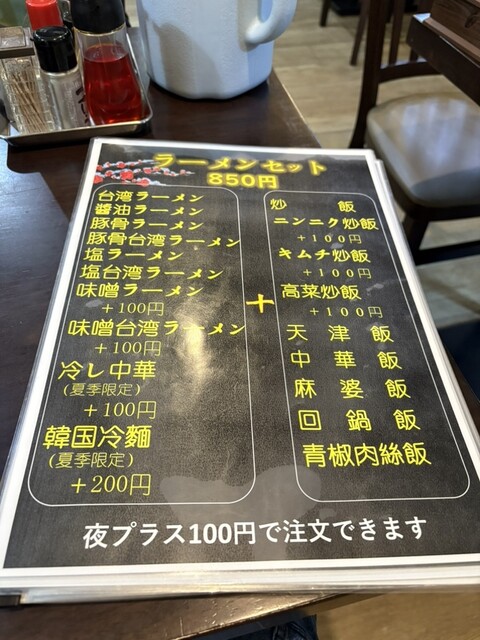 ラーメンセット
850円
台湾ラーメン
醬油ラーメン
豚骨ラーメン
豚骨台湾ラーメン
塩ラーメン
塩台湾ラーメン
味噌ラーメン
+100円
味噌台湾ラーメン
+100円
冷し中華
(夏季限定)
+100円
韓国冷麵
(夏季限定)
+200円
+
炒飯
ニンニク炒飯
+100円
キムチ炒飯
+100円
高菜炒飯
+100円
天津飯
中華飯
麻婆飯
回鍋飯
青椒肉絲飯
夜プラス100円で注文できます